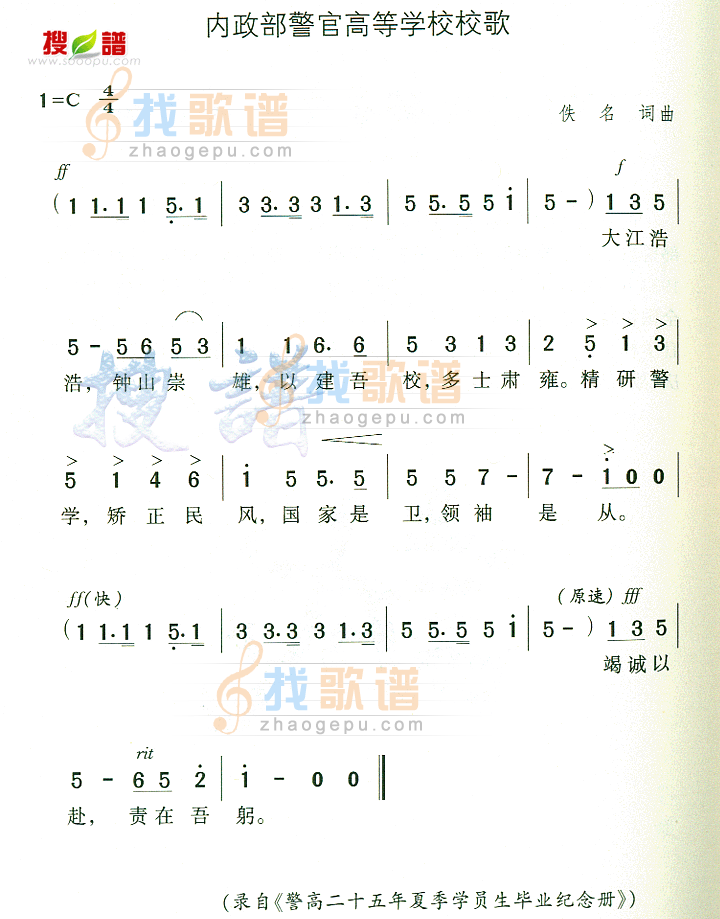 内政部警官高等学校校歌
搜谱
www.sooopu.com
1=C 4/4
找歌谱
zhaogepu.com
佚 名 词曲
ff f
( 1 1.1 1 5.1 | 3 3.3 3 1.3 | 5 5.5 5 i | 5 - ) 1 3 5 |
大江浩
5 - 5 6 5 3 | 1 1 6. 6 | 5 3 1 3 | 2 5 1 3 |
浩，钟山崇 雄，以建吾 校，多士肃雍。精研警
搜谱
找歌谱
zhaogepu.com
5 1 4 6 | i 5 5. 5 | 5 5 7 - | 7 - i 0 0 |
学，矫正民 风，国家是 卫，领袖 是 从。
ff(快) (原速) fff
( 1 1.1 1 5.1 | 3 3.3 3 1.3 | 5 5.5 5 i | 5 - ) 1 3 5 |
竭诚以
找歌谱
zhaogepu.com
rit
5 - 6 5 2 | i - 0 0 ‖
赴， 责在吾 躬。
(录自《警高二十五年夏季学员生毕业纪念册》)